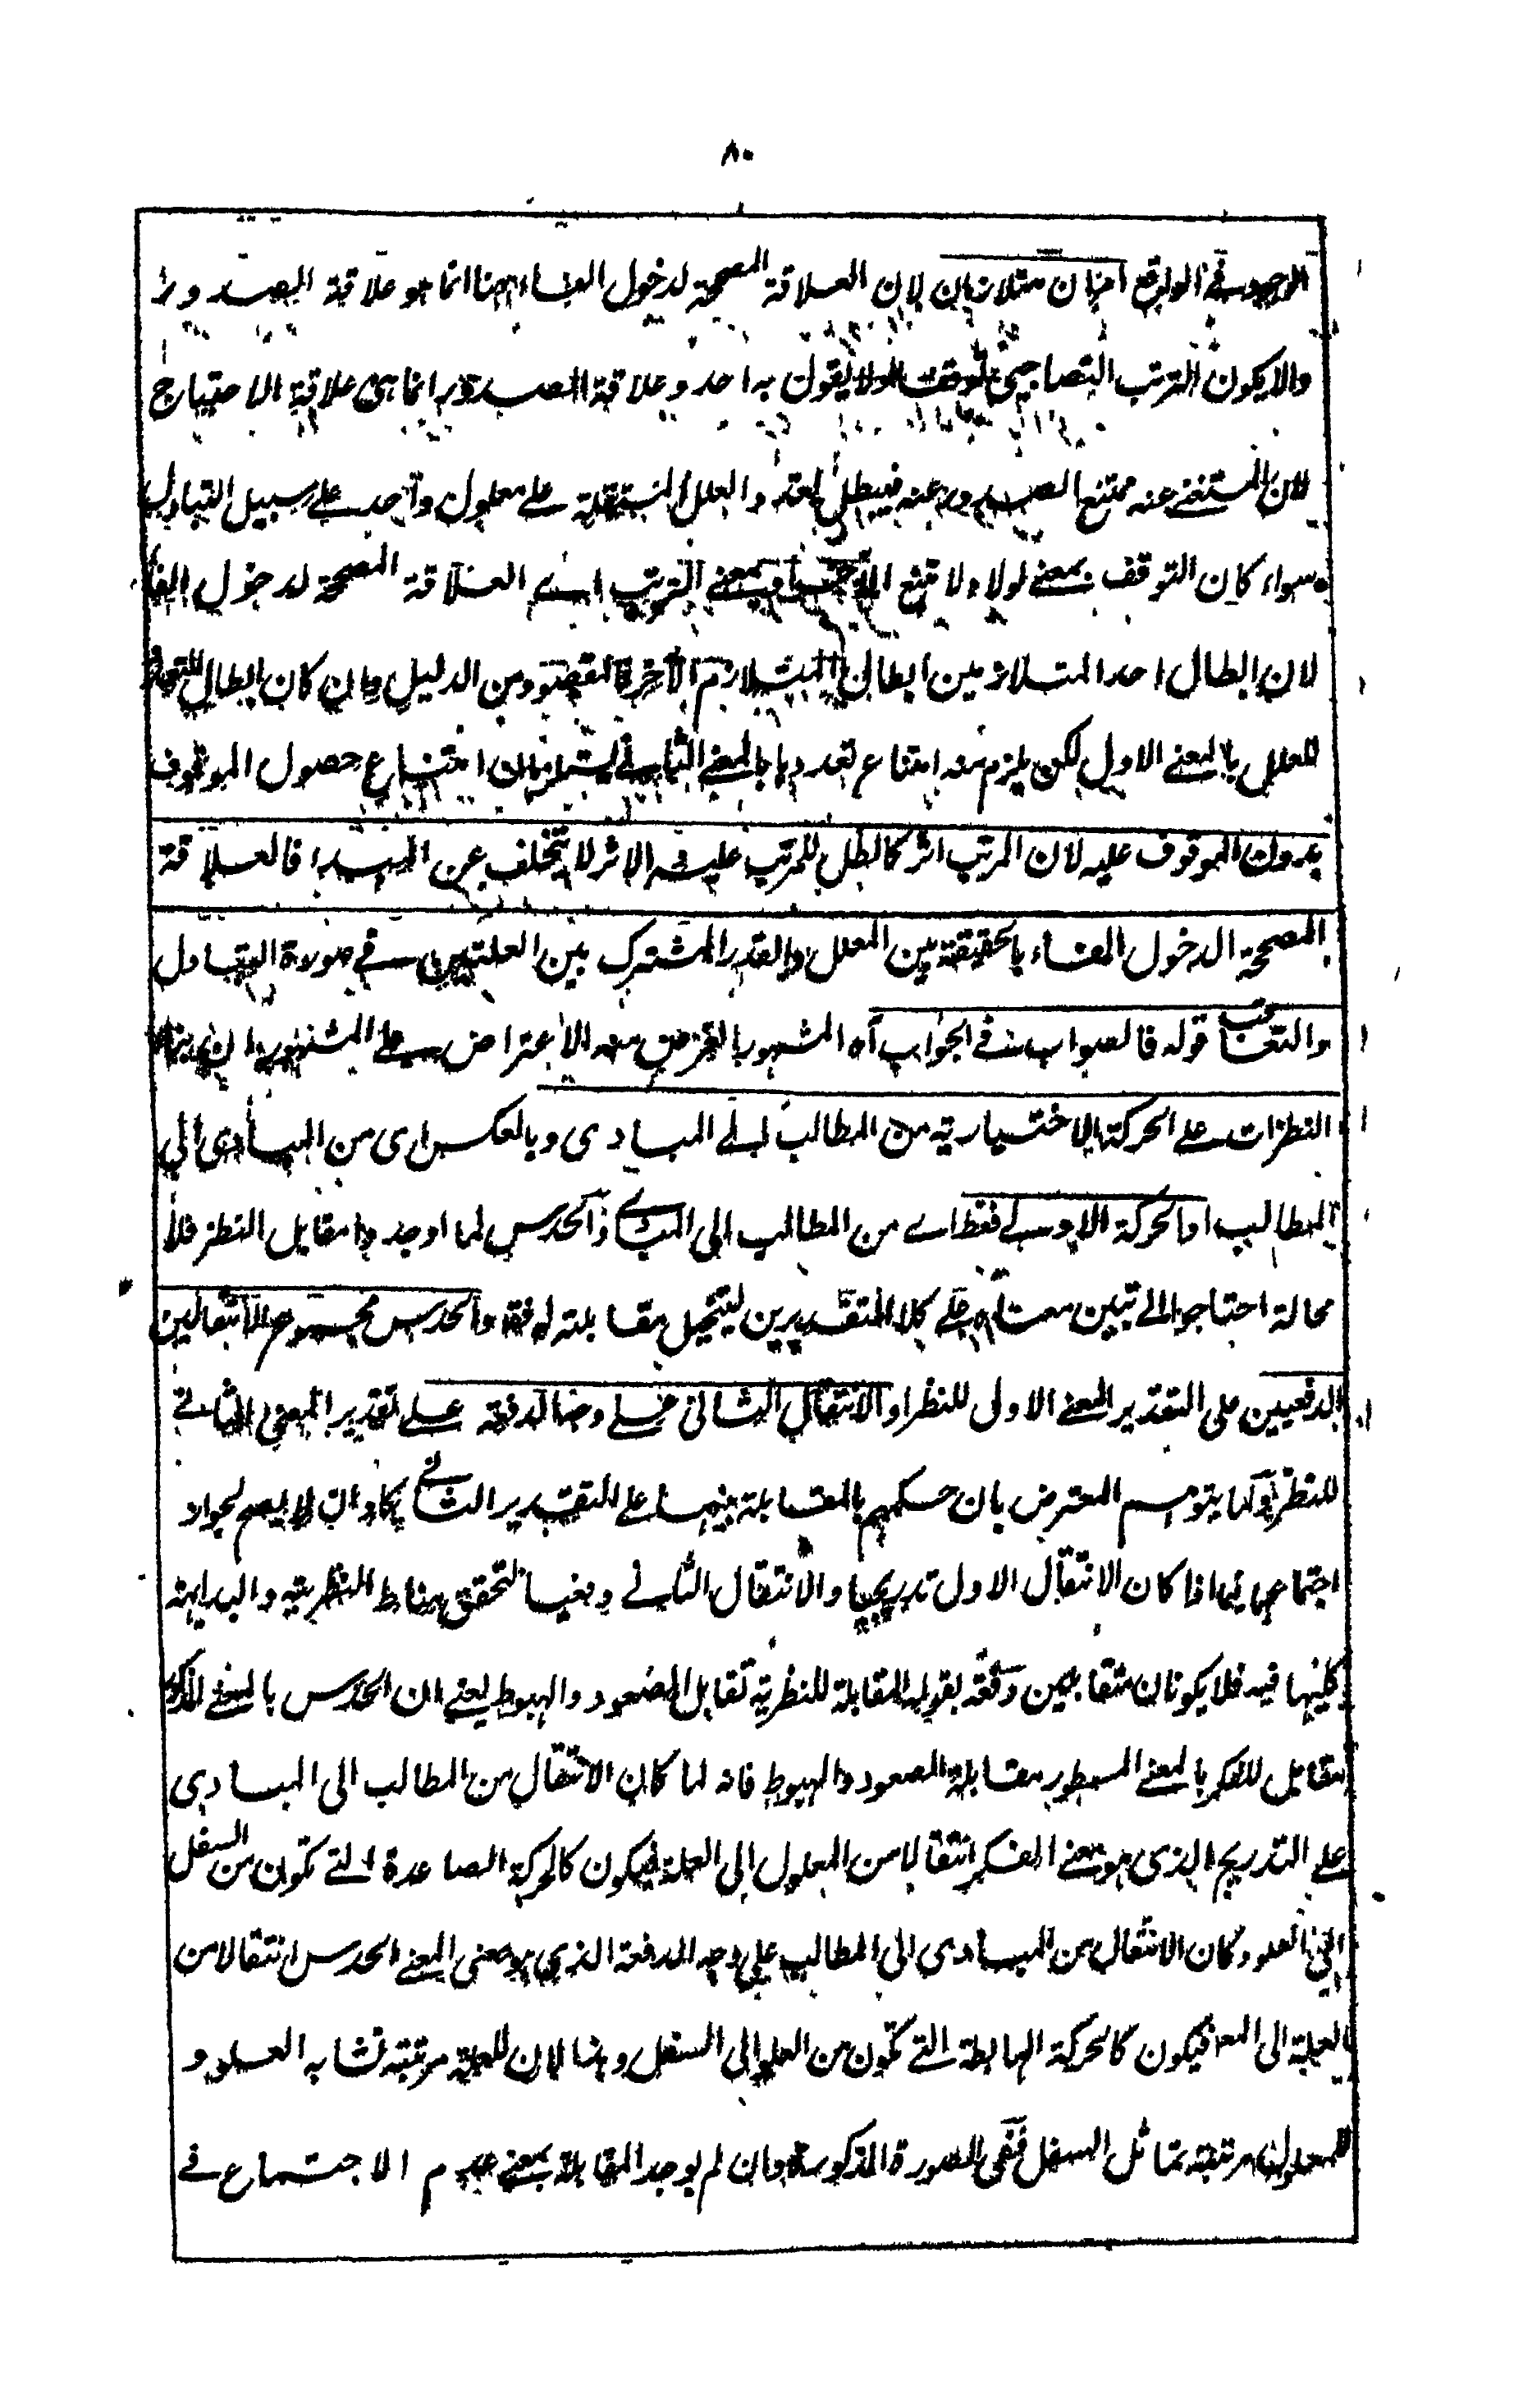 ٨٠
الواقع امران متلازمان لان العلاقة المصححة لدخول الفاء ههنا انما هو علاقة الصدور
والا يكون الترتب التصاحبي توقفا ولا يقول به احد وعلاقة الصدور انما هى علاقة الاحتياج
لان المستغنى عنه ممتنع الصدور عنه فيبطل تعدد العلل المستقلة على معلول واحد على سبيل التبادل
سواء كان التوقف بمعنى لولاه لامتنع او بمعنى الترتب اى العلاقة المصححة لدخول الفاء
لان ابطال احد المتلازمين ابطال المتلازم الآخر فالمقصود من الدليل وان كان ابطال
للعلل بالمعنى الاول لكن يلزم منه امتناع تعددها بالمعنى الثانى امتناع حصول الموقوف
بدون الموقوف عليه لان المرتب اثر كالظل للمرتب عليه والاثر لا يتخلف عن المبدا فالعلاقة
المصححة الدخول الفاء بالحقيقة بين المعلل والقدر المشترك بين العلتين فى صورة التبادل
والتعاقب قوله فالصواب فى الجواب آه المشهور الغرض منه الاعتراض على المشهور ان
النظرات على الحركة الاختيارية من المطالب الى المبادى وبالعكس اى من المبادى الى
المطالب او الحركة الاولى فقط اى من المطالب الى المبادى والحدس لما اوجدوا مقابل النظر فلا
محالة احتاجوا الى تبين معناه على كلا التقديرين ليتحيل مقابلته له فقالوا الحدس مجموع الانتقالين
الدفعيين على التقدير المعنى الاول للنظر او الانتقال الثانى على وضا الدفعة على تقدير المعنى الثانى
للنظر ولما يتوهم المعترض بان حكمهم بالمقابلة بينهما على التقدير الثانى يكاد ان لا يصح لجواز
اجتماعهما فيما اذا كان الانتقال الاول تدريجيا والانتقال الثانى دفعيا لتحقق مناط النظرية والبداهة
كليهما فيه فلا يكونان متقابلين دفعه بقوله المقابلة للنظرية تقابل الصعود والهبوط يعنى ان الحدس بالمعنى المذكور
مقابل للفكر بالمعنى المسطور مقابلة الصعود والهبوط فانه لما كان الانتقال من المطالب الى المبادى
على التدريج الذى هو معنى الفكر انتقالا من المعلول الى العلة فيكون كالحركة الصاعدة التى تكون من السفل
الى العلو وكان الانتقال من المبادى الى المطالب على وجه الدفعة الذى هو معنى المعنى الحدس انتقالا من
العلة الى المعـ فيكون كالحركة الهابطة التى تكون من العلو الى السفل وهذا لان للعلة مرتبة تشابه العلو و
للمعلول مرتبة تماثل السفل ففى الصورة المذكورة وان لم يوجد المقابلة بمعنى عدم الاجتماع فى